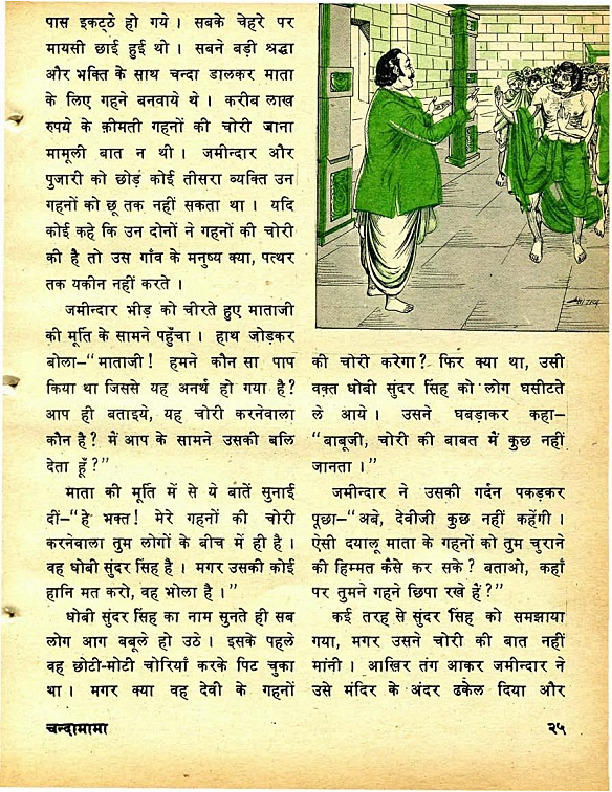 पास इकट्ठे हो गये । सबके चेहरे पर
मायसी छाई हुई थी । सबने बड़ी श्रद्धा
और भक्ति के साथ चन्दा डालकर माता
के लिए गहने बनवाये थे । करीब लाख
रुपये के क़ीमती गहनों की चोरी जाना
मामूली बात न थी । जमीन्दार और
पुजारी को छोड़ कोई तीसरा व्यक्ति उन
गहनों को छू तक नहीं सकता था । यदि
कोई कहे कि उन दोनों ने गहनों की चोरी
की है तो उस गाँव के मनुष्य क्या, पत्थर
तक यकीन नहीं करते ।
जमीन्दार भीड़ को चीरते हुए माताजी
की मूर्ति के सामने पहुँचा । हाथ जोड़कर
बोला–“माताजी! हमने कौन सा पाप
किया था जिससे यह अनर्थ हो गया है?
आप ही बताइये, यह चोरी करनेवाला
कौन है? में आप के सामने उसकी बलि
देता हूँ?”
माता की मूर्ति में से ये बातें सुनाई
दीं–“हे भक्त! मेरे गहनों की चोरी
करनेवाला तुम लोगों के बीच में ही है ।
वह धोबी सुंदर सिंह है । मगर उसकी कोई
हानि मत करो, वह भोला है ।”
धोबी सुंदर सिंह का नाम सुनते ही सब
लोग आग बबूले हो उठे । इसके पहले
वह छोटी-मोटी चोरियाँ करके पिट चुका
था । मगर क्या वह देवी के गहनों
की चोरी करेगा? फिर क्या था, उसी
वक़्त धोबी सुंदर सिंह को लोग घसीटते
ले आये । उसने घबड़ाकर कहा–
“बाबूजी, चोरी की बाबत में कुछ नहीं
जानता ।”
जमीन्दार ने उसकी गर्दन पकड़कर
पूछा–“अबे, देवीजी कुछ नहीं कहेंगी ।
ऐसी दयालू माता के गहनों को तुम चुराने
की हिम्मत कैसे कर सके? बताओ, कहाँ
पर तुमने गहने छिपा रखे हें?”
कई तरह से सुंदर सिंह को समझाया
गया, मगर उसने चोरी की बात नहीं
मांनी । आख़िर तंग आकर जमीन्दार ने
उसे मंदिर के अंदर ढकेल दिया और
चन्दामामा
२५